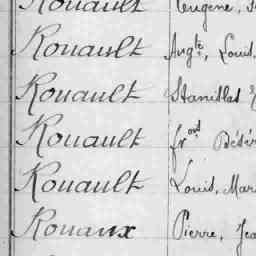 Rouault Eugène,
Rouault Augte, Louis,
Rouault Stanislas
Rouault frois Désiré
Rouault Louis, Mar
Rouaux Pierre, Jea